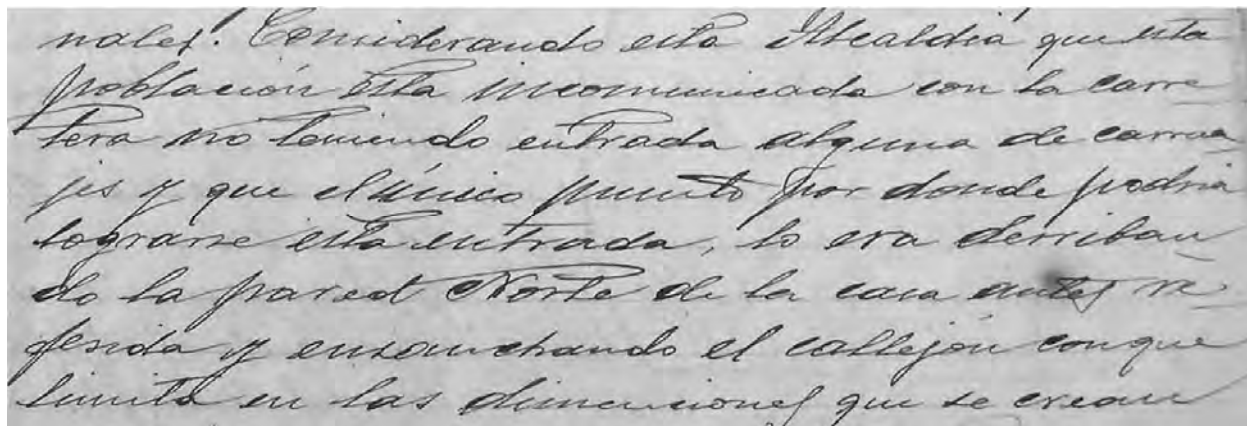 nales. Considerando esta Alcaldia que esta
población esta incomunicada con la carre
tera no teniendo entrada alguna de carrua
jes y que el único punto por donde podria
lograrse esta entrada, lo era derriban
do la pared Norte de la casa antes re
ferida y ensanchando el callejón con que
limita en las dimenciones que se crean